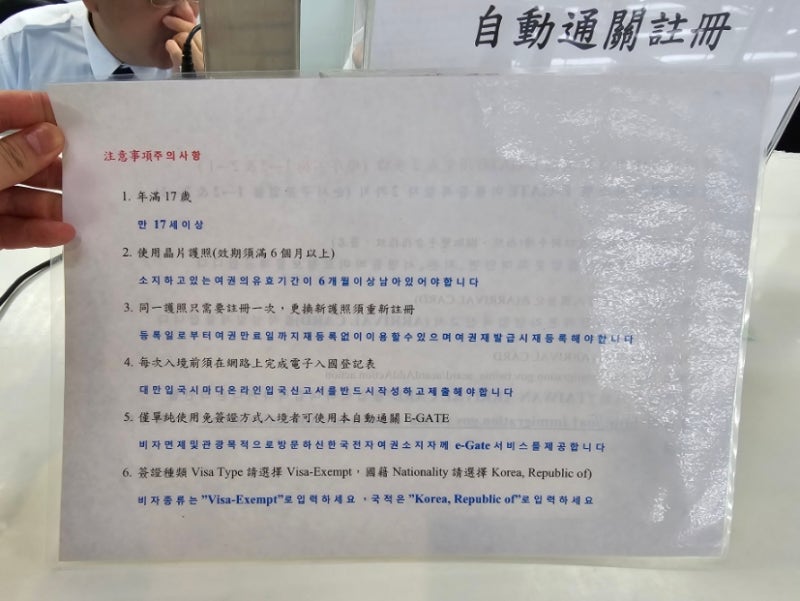 自動通關註冊
注意事項주의사항
1. 年滿 17 歲
만 17 세이상
2. 使用晶片護照(效期須滿 6 個月以上)
소지하고있는여권의유효기간이 6 개월이상남아있어야합니다
3. 同一護照只需要註冊一次，更換新護照須重新註冊
등록일로부터여권만료일까지재등록없이이용할수있으며여권재발급시재등록해야합니다
4. 每次入境前須在網路上完成電子入國登記表
대만입국시마다온라인입국신고서를반드시작성하고제출해야합니다
5. 僅單純使用免簽證方式入境者可使用本自動通關 E-GATE
비자면제및관광목적으로방문하신한국전자여권소지자께 e-Gate 서비스를제공합니다
6. 簽證種類 Visa Type 請選擇 Visa-Exempt，國籍 Nationality 請選擇 Korea, Republic of)
비자종류는”Visa-Exempt”로입력하세요 , 국적은”Korea, Republic of”로입력하세요